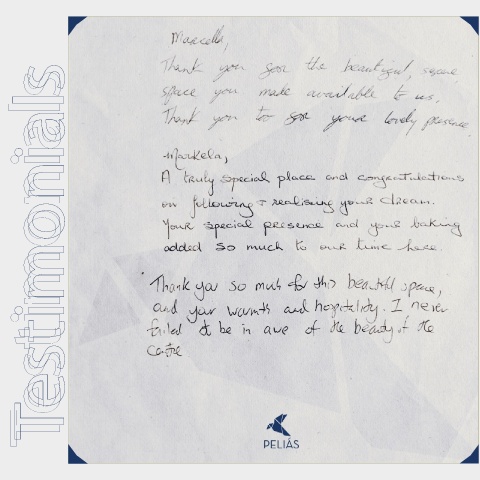 Testimonials
Marcella,
Thank you for the beautiful, serene
space you made available to us.
Thank you too for your lovely presence.
Markela,
A truly special place and congratulations
on following + realising your dream.
Your special presence and your baking
added so much to our time here.
Thank you so much for this beautiful space,
and your warmth and hospitality. I never
failed to be in awe of the beauty of the
centre
PELIÁS